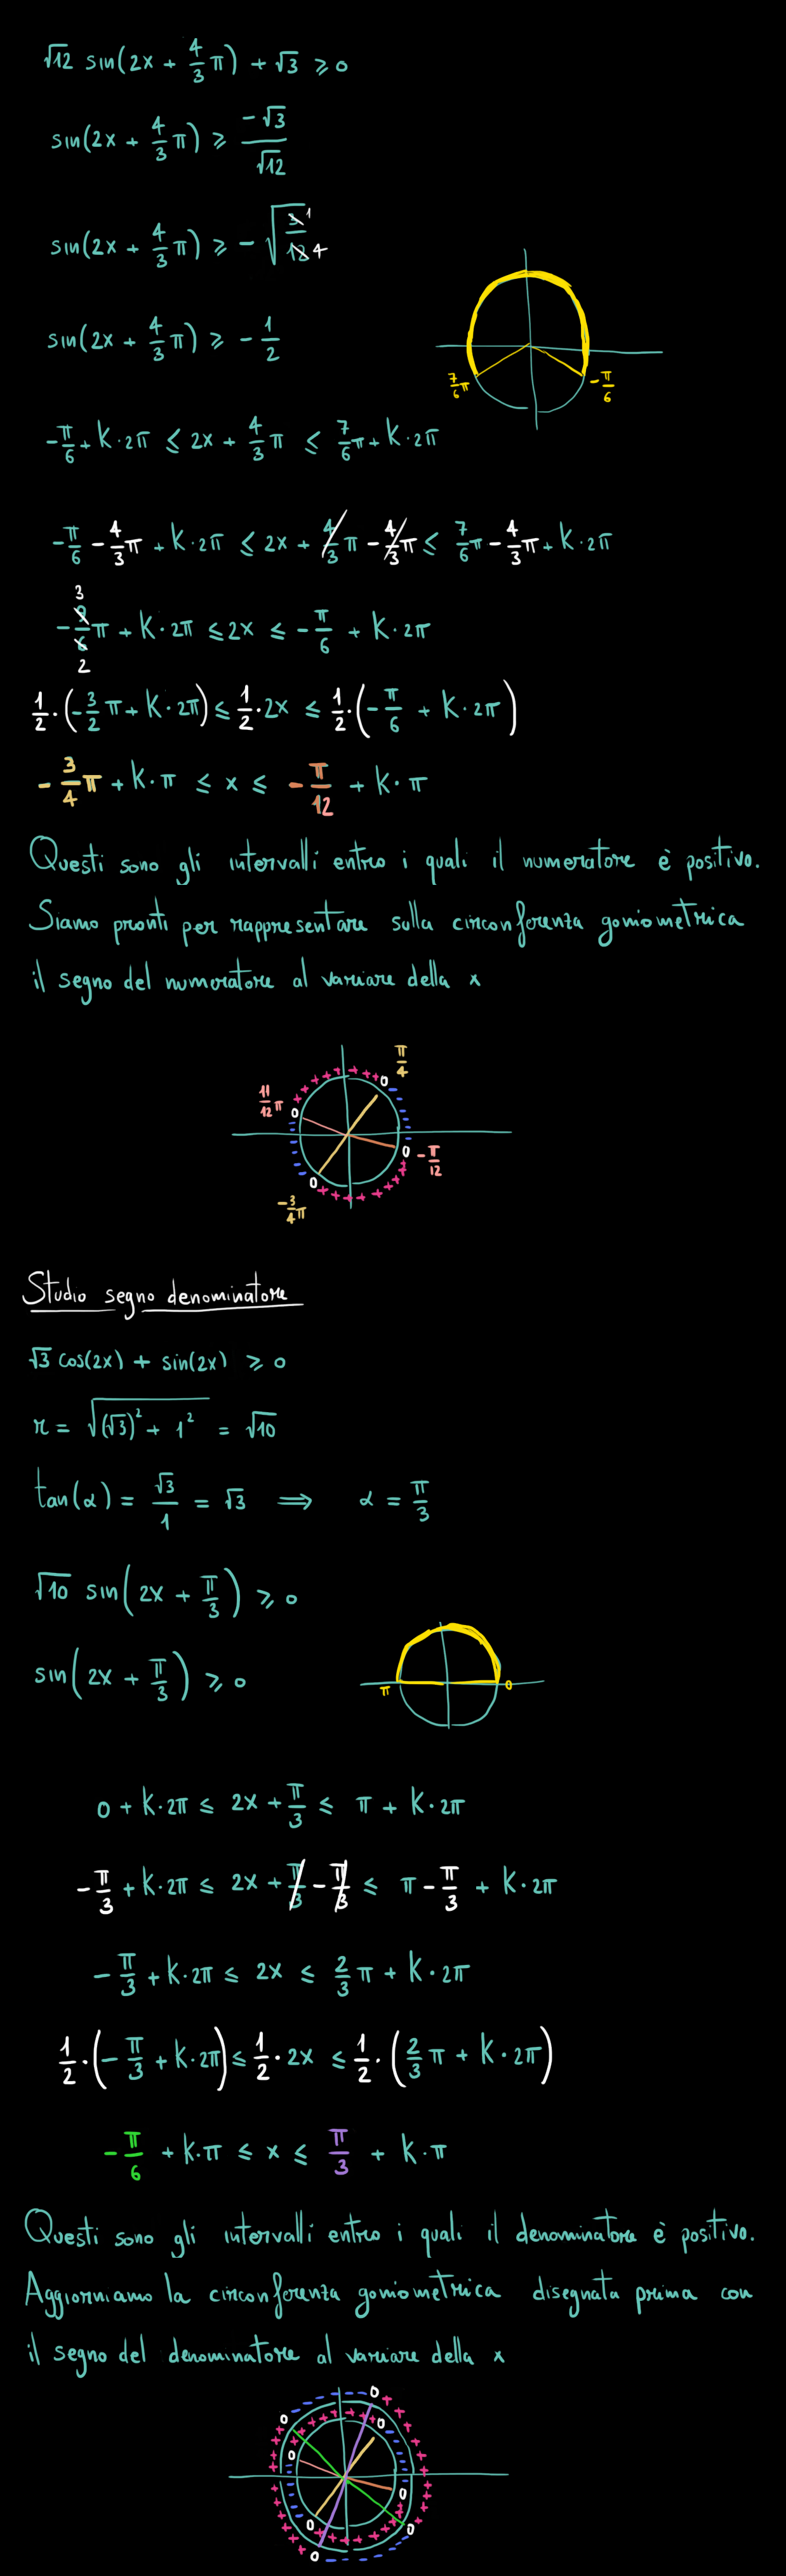 √12 sin(2x + 4/3 π) + √3 ⩾ 0
sin(2x + 4/3 π) ⩾ -√3/√12
sin(2x + 4/3 π) ⩾ -√(3/12) 1 4
sin(2x + 4/3 π) ⩾ -1/2
7/6 π -π/6
-π/6 + K·2π ⩽ 2x + 4/3 π ⩽ 7/6 π + K·2π
-π/6 - 4/3 π + K·2π ⩽ 2x + 4/3 π - 4/3 π ⩽ 7/6 π - 4/3 π + K·2π
3
-9/6 π + K·2π ⩽ 2x ⩽ -π/6 + K·2π
2
1/2·(-3/2 π + K·2π) ⩽ 1/2·2x ⩽ 1/2·(-π/6 + K·2π)
-3/4 π + K·π ⩽ x ⩽ -π/12 + K·π
Questi sono gli intervalli entro i quali il numeratore è positivo.
Siamo pronti per rappresentare sulla circonferenza goniometrica
il segno del numeratore al variare della x
π/4
11/12 π 0 0
0 -π/12
0
-3/4 π
Studio segno denominatore
√3 cos(2x) + sin(2x) ⩾ 0
r = √((√3)² + 1²) = √10
tan(α) = √3/1 = √3 ⟹ α = π/3
√10 sin(2x + π/3) ⩾ 0
sin(2x + π/3) ⩾ 0
π 0
0 + K·2π ⩽ 2x + π/3 ⩽ π + K·2π
-π/3 + K·2π ⩽ 2x + π/3 - π/3 ⩽ π - π/3 + K·2π
-π/3 + K·2π ⩽ 2x ⩽ 2/3 π + K·2π
1/2·(-π/3 + K·2π) ⩽ 1/2·2x ⩽ 1/2·(2/3 π + K·2π)
-π/6 + K·π ⩽ x ⩽ π/3 + K·π
Questi sono gli intervalli entro i quali il denominatore è positivo.
Aggiorniamo la circonferenza goniometrica disegnata prima con
il segno del denominatore al variare della x
0
0 0
0
0
0 0
0